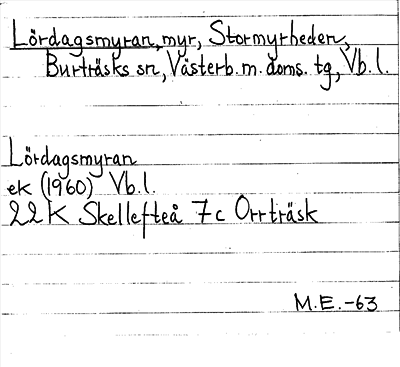 Lördagsmyran, myr, Stormyrheden,
Burträsks sn, Västerb. m. doms. tg, Vb. l.
Lördagsmyran
ek (1960) Vb. l.
22 K Skellefteå 7c Orrträsk
M.E. -63